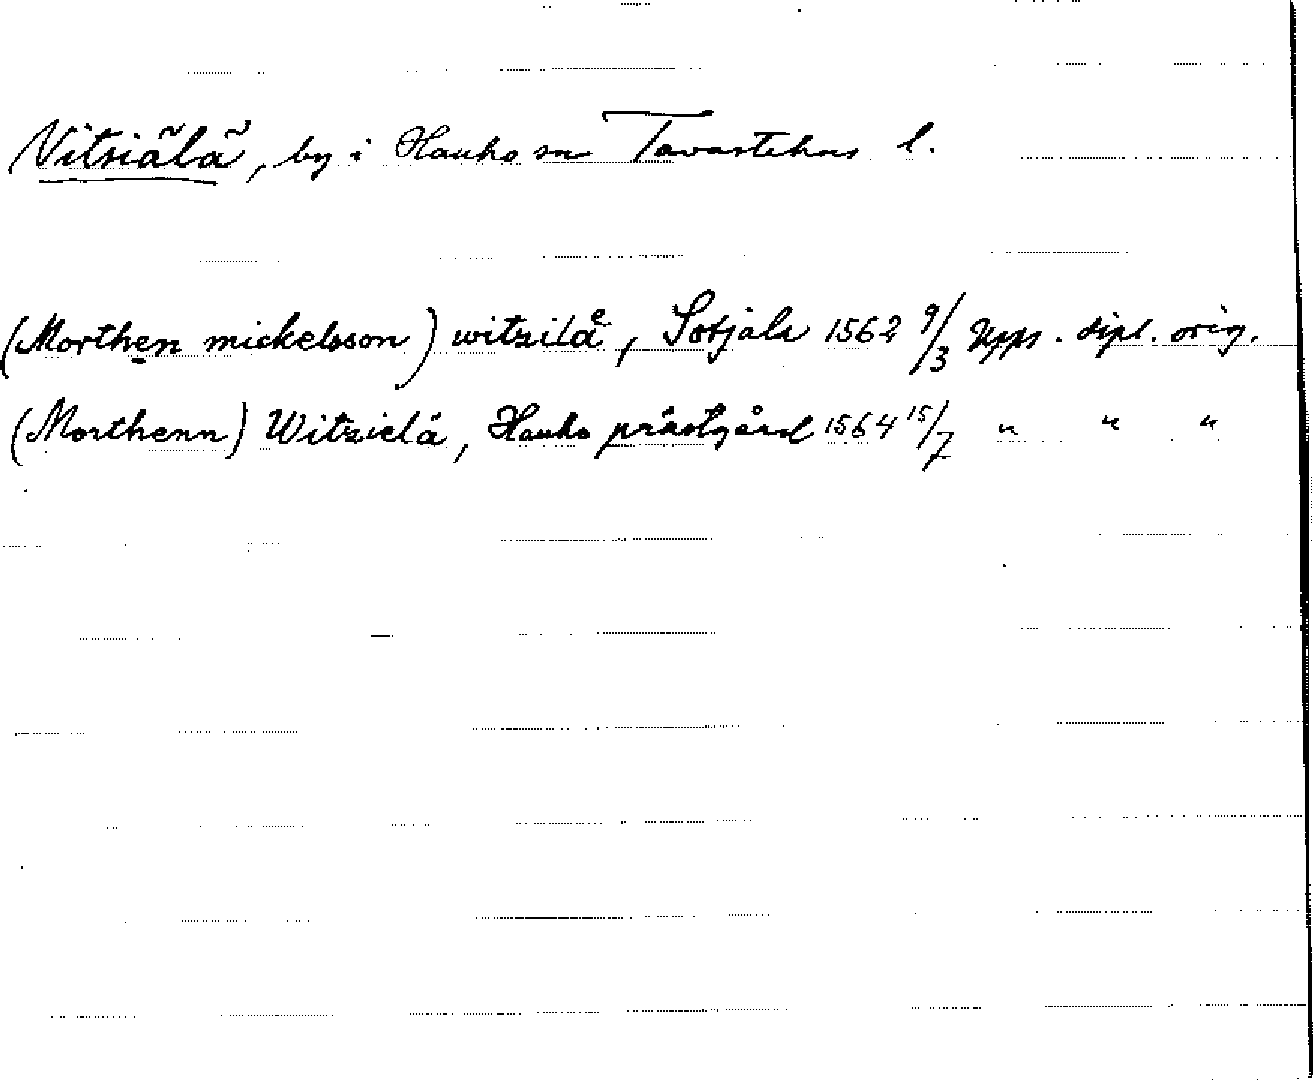 Vitsiälä, by i Hauho sn Tavastehus l.
(Morthen mickelsson) witzilaͤ, Sotjala 1562 9/3 Upps. dipl. orig.
(Morthenn) Witzielä, Hauho prästgård 1564 15/7 " " "